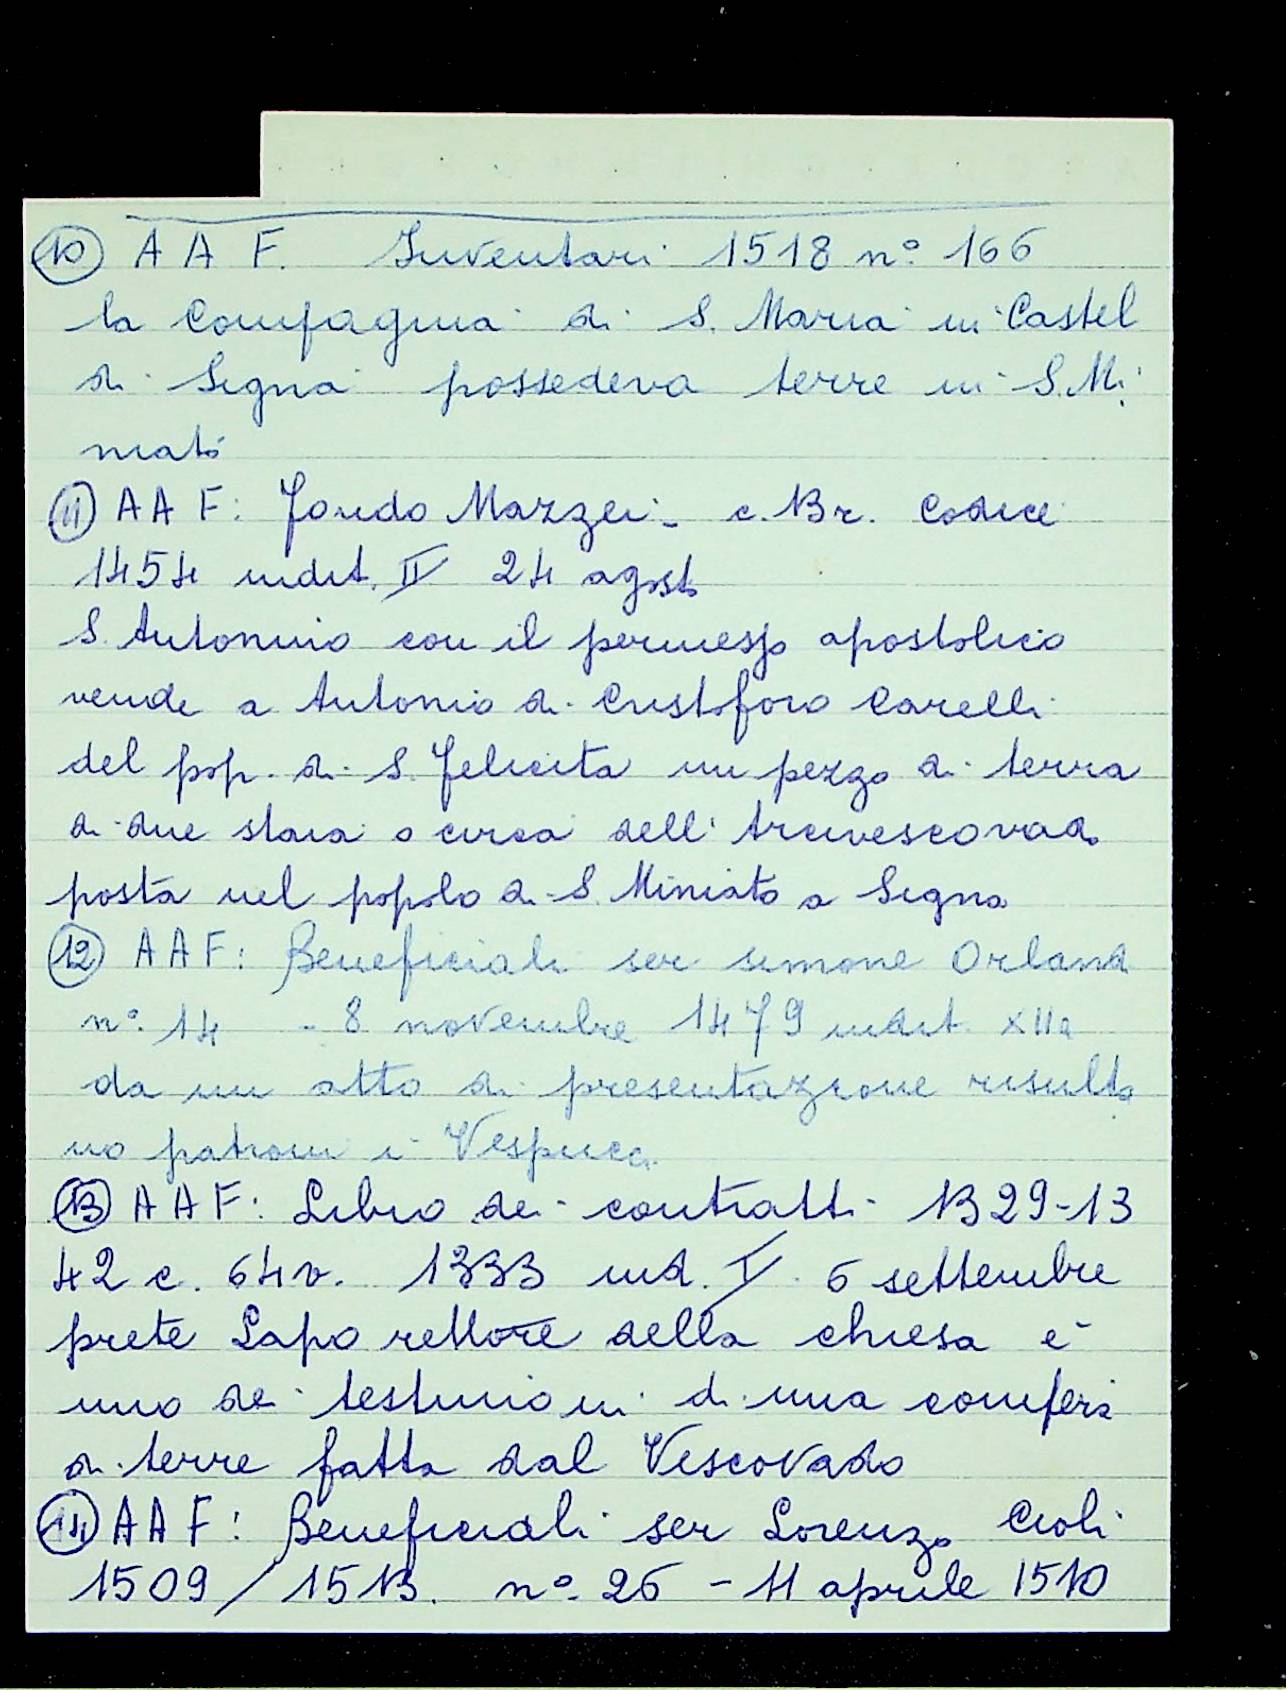 10 A A F. Inventari 1518 n° 166
la Compagnia di S. Maria in Castel
di Segna possedeva terre in S. Mi:
niato
11 A A F: Fondo Mazzei - c. 13 r. Codice
1454 indit. II 24 agosto
S. Antonino con il permesso apostolico
vende a Antonio di Cristoforo Carelli
del pop. di S. Felicita un pezzo di terra
di due staia o circa dell' Arcivescovado
posta nel popolo di S. Miniato a Segna
12 A A F: Beneficiali ser Simone Orlandi
n° 14 - 8 novembre 1479 indit. XIIa
da un atto di presentazione risulta
no patroni i Vespucci
13 A A F: Libro dei contratti 1329-13
42 c. 64v. 1333 ind. I 6 settembre
prete Lapo rettore della chiesa è
uno dei testimoni di una compera
di terre fatta dal Vescovado
14 A A F: Beneficiali ser Lorenzo Cioli
1509/1513. n° 26 - 11 aprile 1510